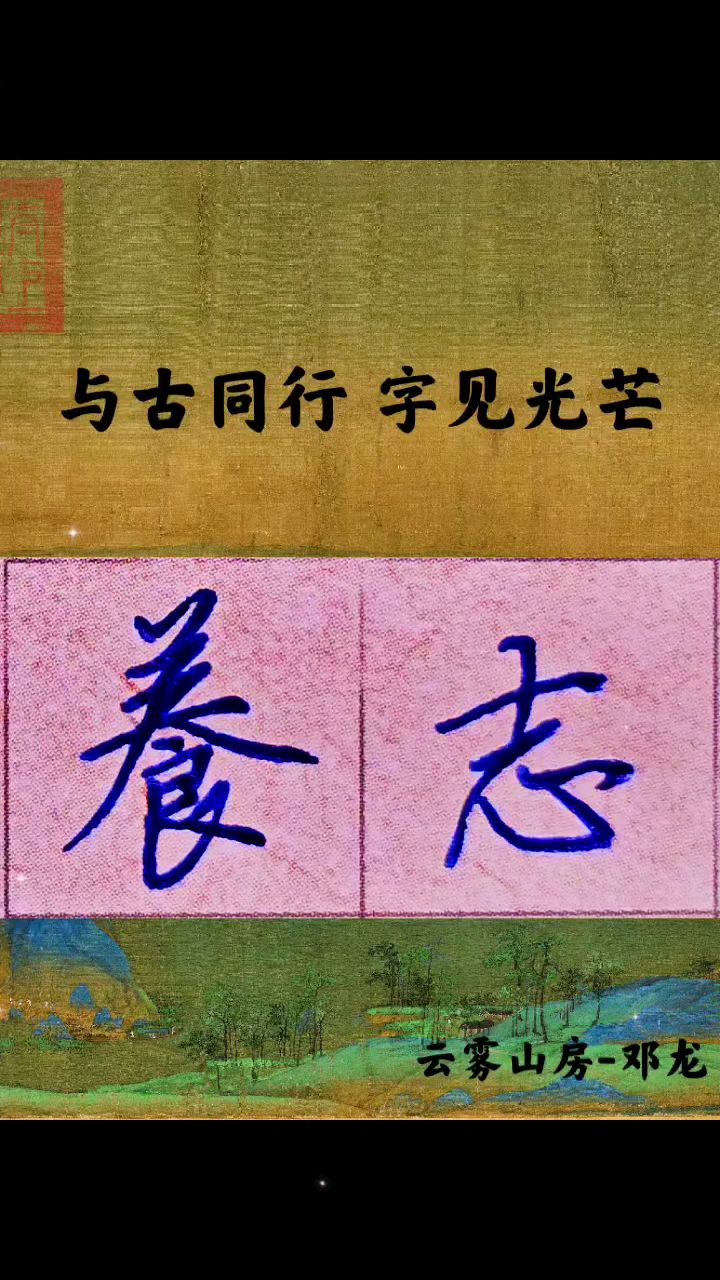 与古同行 字见光芒
養志
云雾山房-邓龙